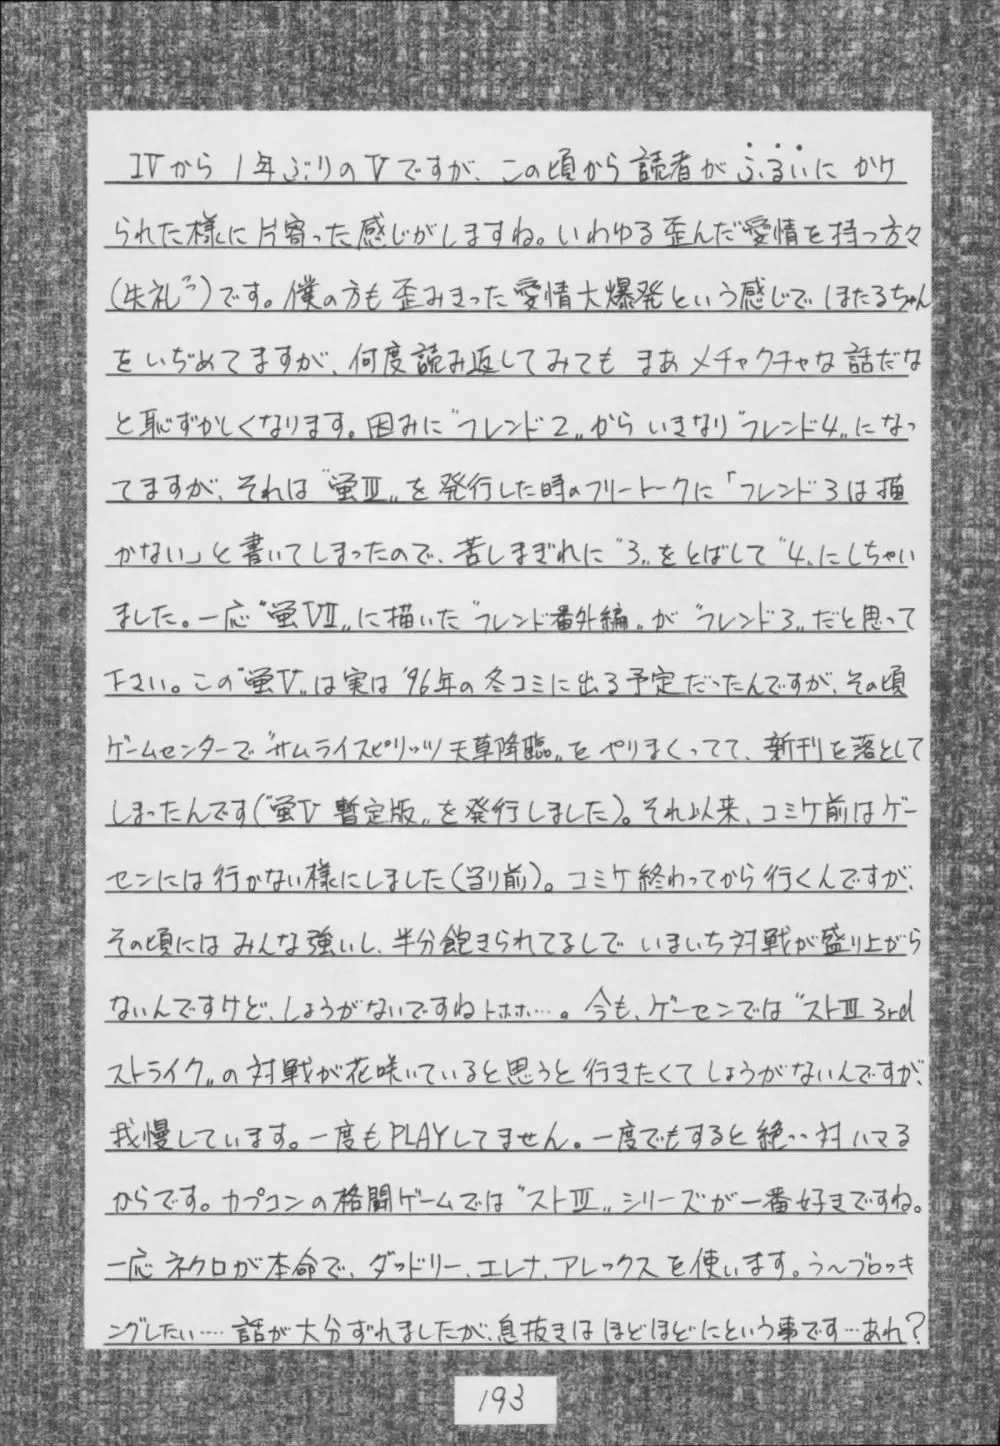 IVから1年ぶりのVですが、この頃から読者がふるいにかけ
られた様に片寄った感じがしますね。いわゆる歪んだ愛情を持つ方々
(失礼っ)です。僕の方も歪みきった愛情大爆発という感じでほたるちゃん
をいぢめてますが、何度読み返してみてもまあメチャクチャな話だな
と恥ずかしくなります。因みに〝フレンド2〟からいきなり〝フレンド4〟になっ
てますが、それは〝蛍III〟を発行した時のフリートークに「フレンド3は描
かない」と書いてしまったので、苦しまぎれに〝3〟をとばして〝4〟にしちゃい
ました。一応〝蛍VII〟に描いた〝フレンド番外編〟が〝フレンド3〟だと思って
下さい。この〝蛍V〟は実は'96年の冬コミに出る予定だったんですが、その頃
ゲームセンターで〝サムライスピリッツ天草降臨〟をやりまくってて、新刊を落として
しまったんです(〝蛍V 暫定版〟を発行しました)。それ以来、コミケ前はゲー
センには行かない様にしました(当り前)。コミケ終わってから行くんですが、
その頃にはみんな強いし、半分飽きられてるしでいまいち対戦が盛り上がら
ないんですけど、しょうがないですねトホホ…。今も、ゲーセンでは〝ストIII 3rd
ストライク〟の対戦が花咲いていると思うと行きたくてしょうがないんですが、
我慢しています。一度もPLAYしてません。一度でもすると絶っ対ハマる
からです。カプコンの格闘ゲームでは〝ストIII〟シリーズが一番好きですね。
一応ネクロが本命で、ダッドリー、エレナ、アレックスを使います。う〜ブロッキ
ングしたい……話が大分ずれましたが、息抜きはほどほどにという事です…あれ?
193